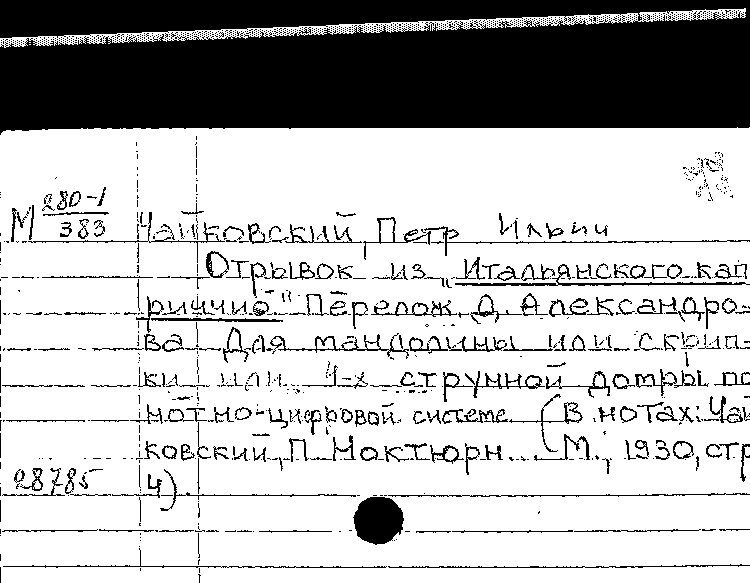 М 280-1/383 Чайковский, Петр Ильич
Отрывок из „Итальянского кап
риччио." Перелож. А. Александро-
ва Для мандолины или скрип-
ки или 4-х струнной домры по
нотно-цифровой системе. (В нотах: Чай
ковский, П. Ноктюрн... М., 1930, стр
28785 4).